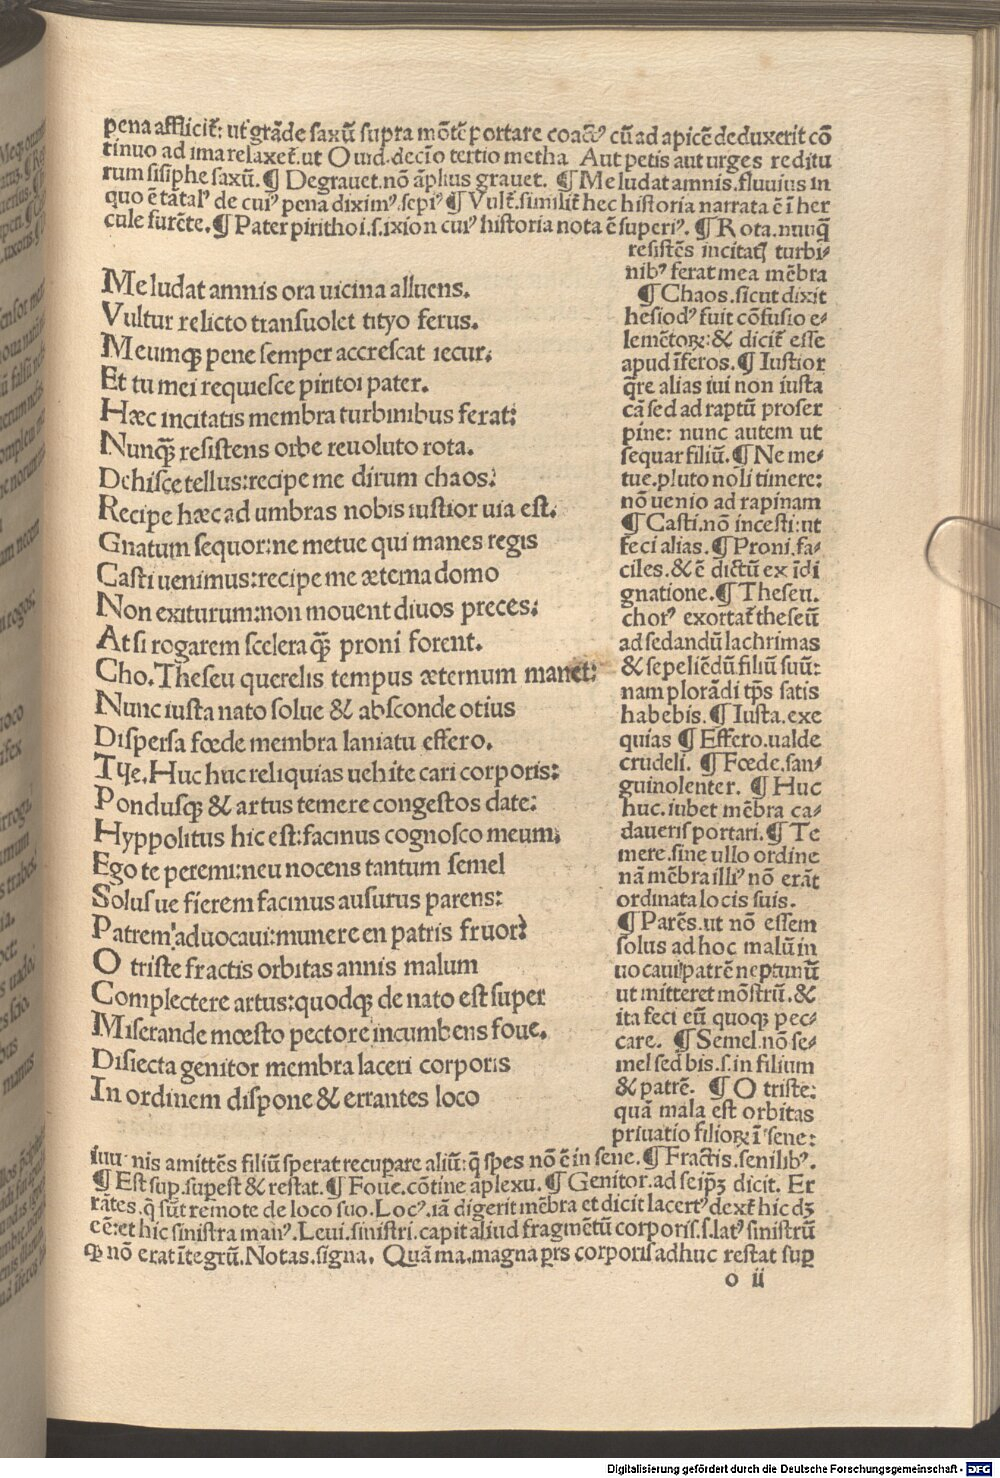 pena afflicit᷑: ut grãde saxũ supra mõtẽ portare coact᷒ cũ ad apicẽ deduxerit cõ
tinuo ad ima relaxet᷑. ut Ouid. decio tertio metha Aut petis aut urges reditu
rum sisiphe saxũ. ¶ Degrauet. nõ ãplius grauet. ¶ Me ludat amnis. fluuius in
quo ẽ tãtal᷒ de cui᷒ pena dixim᷒. sepi᷒ ¶ Vult᷑. similit᷑ hec historia narrata ẽ ĩ her
cule furẽte. ¶ Pater pirithoi. s. ixion cui᷒ historia nota ẽ superi᷒. ¶ Rota. nuuq̃
Me ludat amnis ora uicina alluens.
Vultur relicto transuolet tityo ferus.
Meumqꝫ pene semper accrescat iecur.
Et tu mei requiesce piritoi pater.
Hæc incitatis membra turbinibus ferat:
Nunqꝫ̃ resistens orbe reuoluto rota.
Dehisce tellus: recipe me dirum chaos:
Recipe hæc ad umbras nobis iustior uia est.
Gnatum sequor: ne metue qui manes regis
Casti uenimus: recipe me æterna domo
Non exiturum: non mouent diuos preces:
At si rogarem scelera qꝫ̃ proni forent.
Cho. Theseu querelis tempus æternum manet:
Nunc iusta nato solue & absconde otius
Dispersa fœde membra laniatu effero.
The. Huc huc reliquias uehite cari corporis:
Pondusqꝫ & artus temere congestos date:
Hyppolitus hic est: facinus cognosco meum.
Ego te peremi: neu nocens tantum semel
Solus ue fierem facinus ausurus parens:
Patrem aduocaui: munere en patris fruor?
O triste fractis orbitas annis malum
Complectere artus: quodqꝫ de nato est super
Miserande mœsto pectore incumbens foue.
Disiecta genitor membra laceri corporis
In ordinem dispone & errantes loco
resistẽs incitat᷒ turbi⸗
nib᷒ ferat mea mẽbra
¶ Chaos. sicut dixit
hesiod᷒ fuit cõfusio e⸗
lemẽtoꝝ: & dicit᷑ esse
apud ĩferos. ¶ Iustior
q̃re alias iui non iusta
cã sed ad raptũ proser
pine: nunc autem ut
sequar filiũ. ¶ Ne me⸗
tue. pluto noli timere:
nõ uenio ad rapinam
¶ Casti. nõ incesti: ut
feci alias. ¶ Proni. fa⸗
ciles. & ẽ dictũ ex ĩdi
gnatione. ¶ Theseu.
chor᷒ exortat᷑ theseũ
ad sedandũ lachrimas
& sepeliẽdũ filiũ suũ:
nam plorãdi tp̃s satis
habebis. ¶ Iusta. exe
quias ¶ Effero. ualde
crudeli. ¶ Fœde. san⸗
guinolenter. ¶ Huc
huc. iubet mẽbra ca⸗
daueris portari. ¶ Te
mere. sine ullo ordine
nã mẽbra illi᷒ nõ erãt
ordinata locis suis.
¶ Parẽs. ut nõ essem
solus ad hoc malũ in
uocaui patrẽ neptunũ
ut mitteret mõstrũ. &
ita feci eũ quoqꝫ pec⸗
care. ¶ Semel. nõ se⸗
mel sed bis. s. in filium
& patrẽ. ¶ O triste:
quã mala est orbitas
priuatio filioꝝ ĩ sene:
iuu nis amittẽs filiũ sperat recupare aliũ: q̃ spes nõ ẽ in sene. ¶ Fractis. senilib᷒.
¶ Est suꝑ. supest & restat. ¶ Foue. cõtine aplexu. ¶ Genitor. ad seipꝫ dicit. Er
rãtes. q̃ sũt remote de loco suo. Loc᷒. iã digerit mẽbra et dicit lacert᷒ dext᷑ hic dꝫ
eẽ: et hic sinistra man᷒. Leui. sinistri. capit aliud fragmẽtũ corporis. s. lat᷒ sinistrũ
ꝙ nõ erat ĩtegrũ. Notas. signa. Quã ma. magna ꝑs corporis adhuc restat suꝑ
o ii
Digitalisierung gefördert durch die Deutsche Forschungsgemeinschaft - DFG